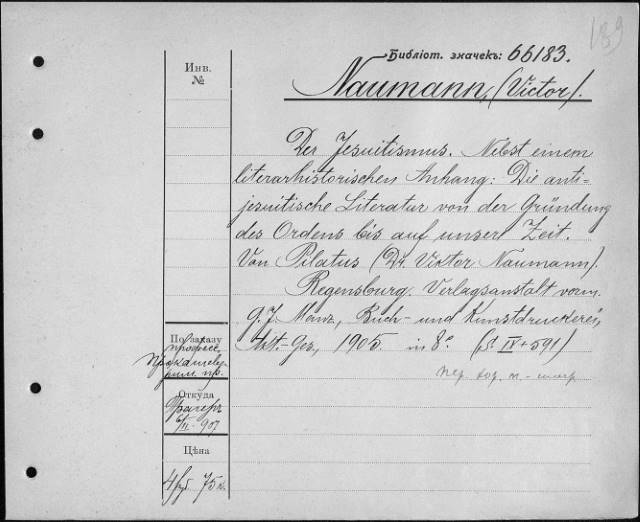 189
Библіот. значекъ: 66183.
Инв.
№
Naumann, (Victor).
Der Jesuitismus. Nebst einem
literarhistorischen Anhang: Die anti-
jesuitische Literatur von der Gründung
des Ordens bis auf unsere Zeit.
Von Pilatus (Dr. Viktor Naumann).
Regensburg. Verlagsanstalt vorm.
G. J. Manz, Buch- und Kunstdruckerei,
Akt.-Ges, 1905 in 8º. (S. IX+591)
По заказу
пр.
Откуда
6/II 907
Цѣна
4 руб. 75 к.